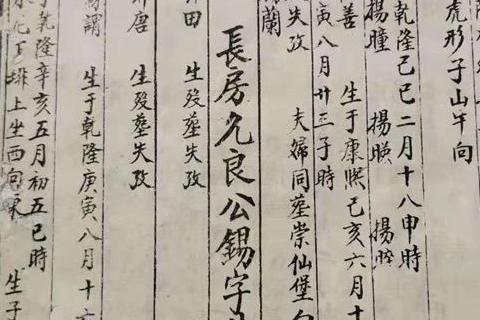 虎形子山午向
乾隆己巳二月十八申時
揚曈 揚暎 揚
善 生于康熙己亥六月十
寅八月廿三子時
失攷 夫婦同墓崇仙堡
蘭
長房久良公錫字
田 生殁墓失攷
唐 生殁墓失攷
謂 生于乾隆庚寅八月十
乾隆辛亥五月初五巳時
上坐西向東 生子